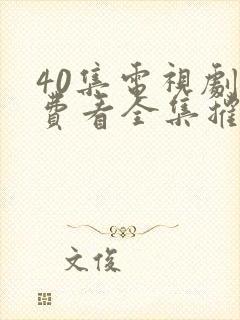 40集電視劇
費看全集推
文俊